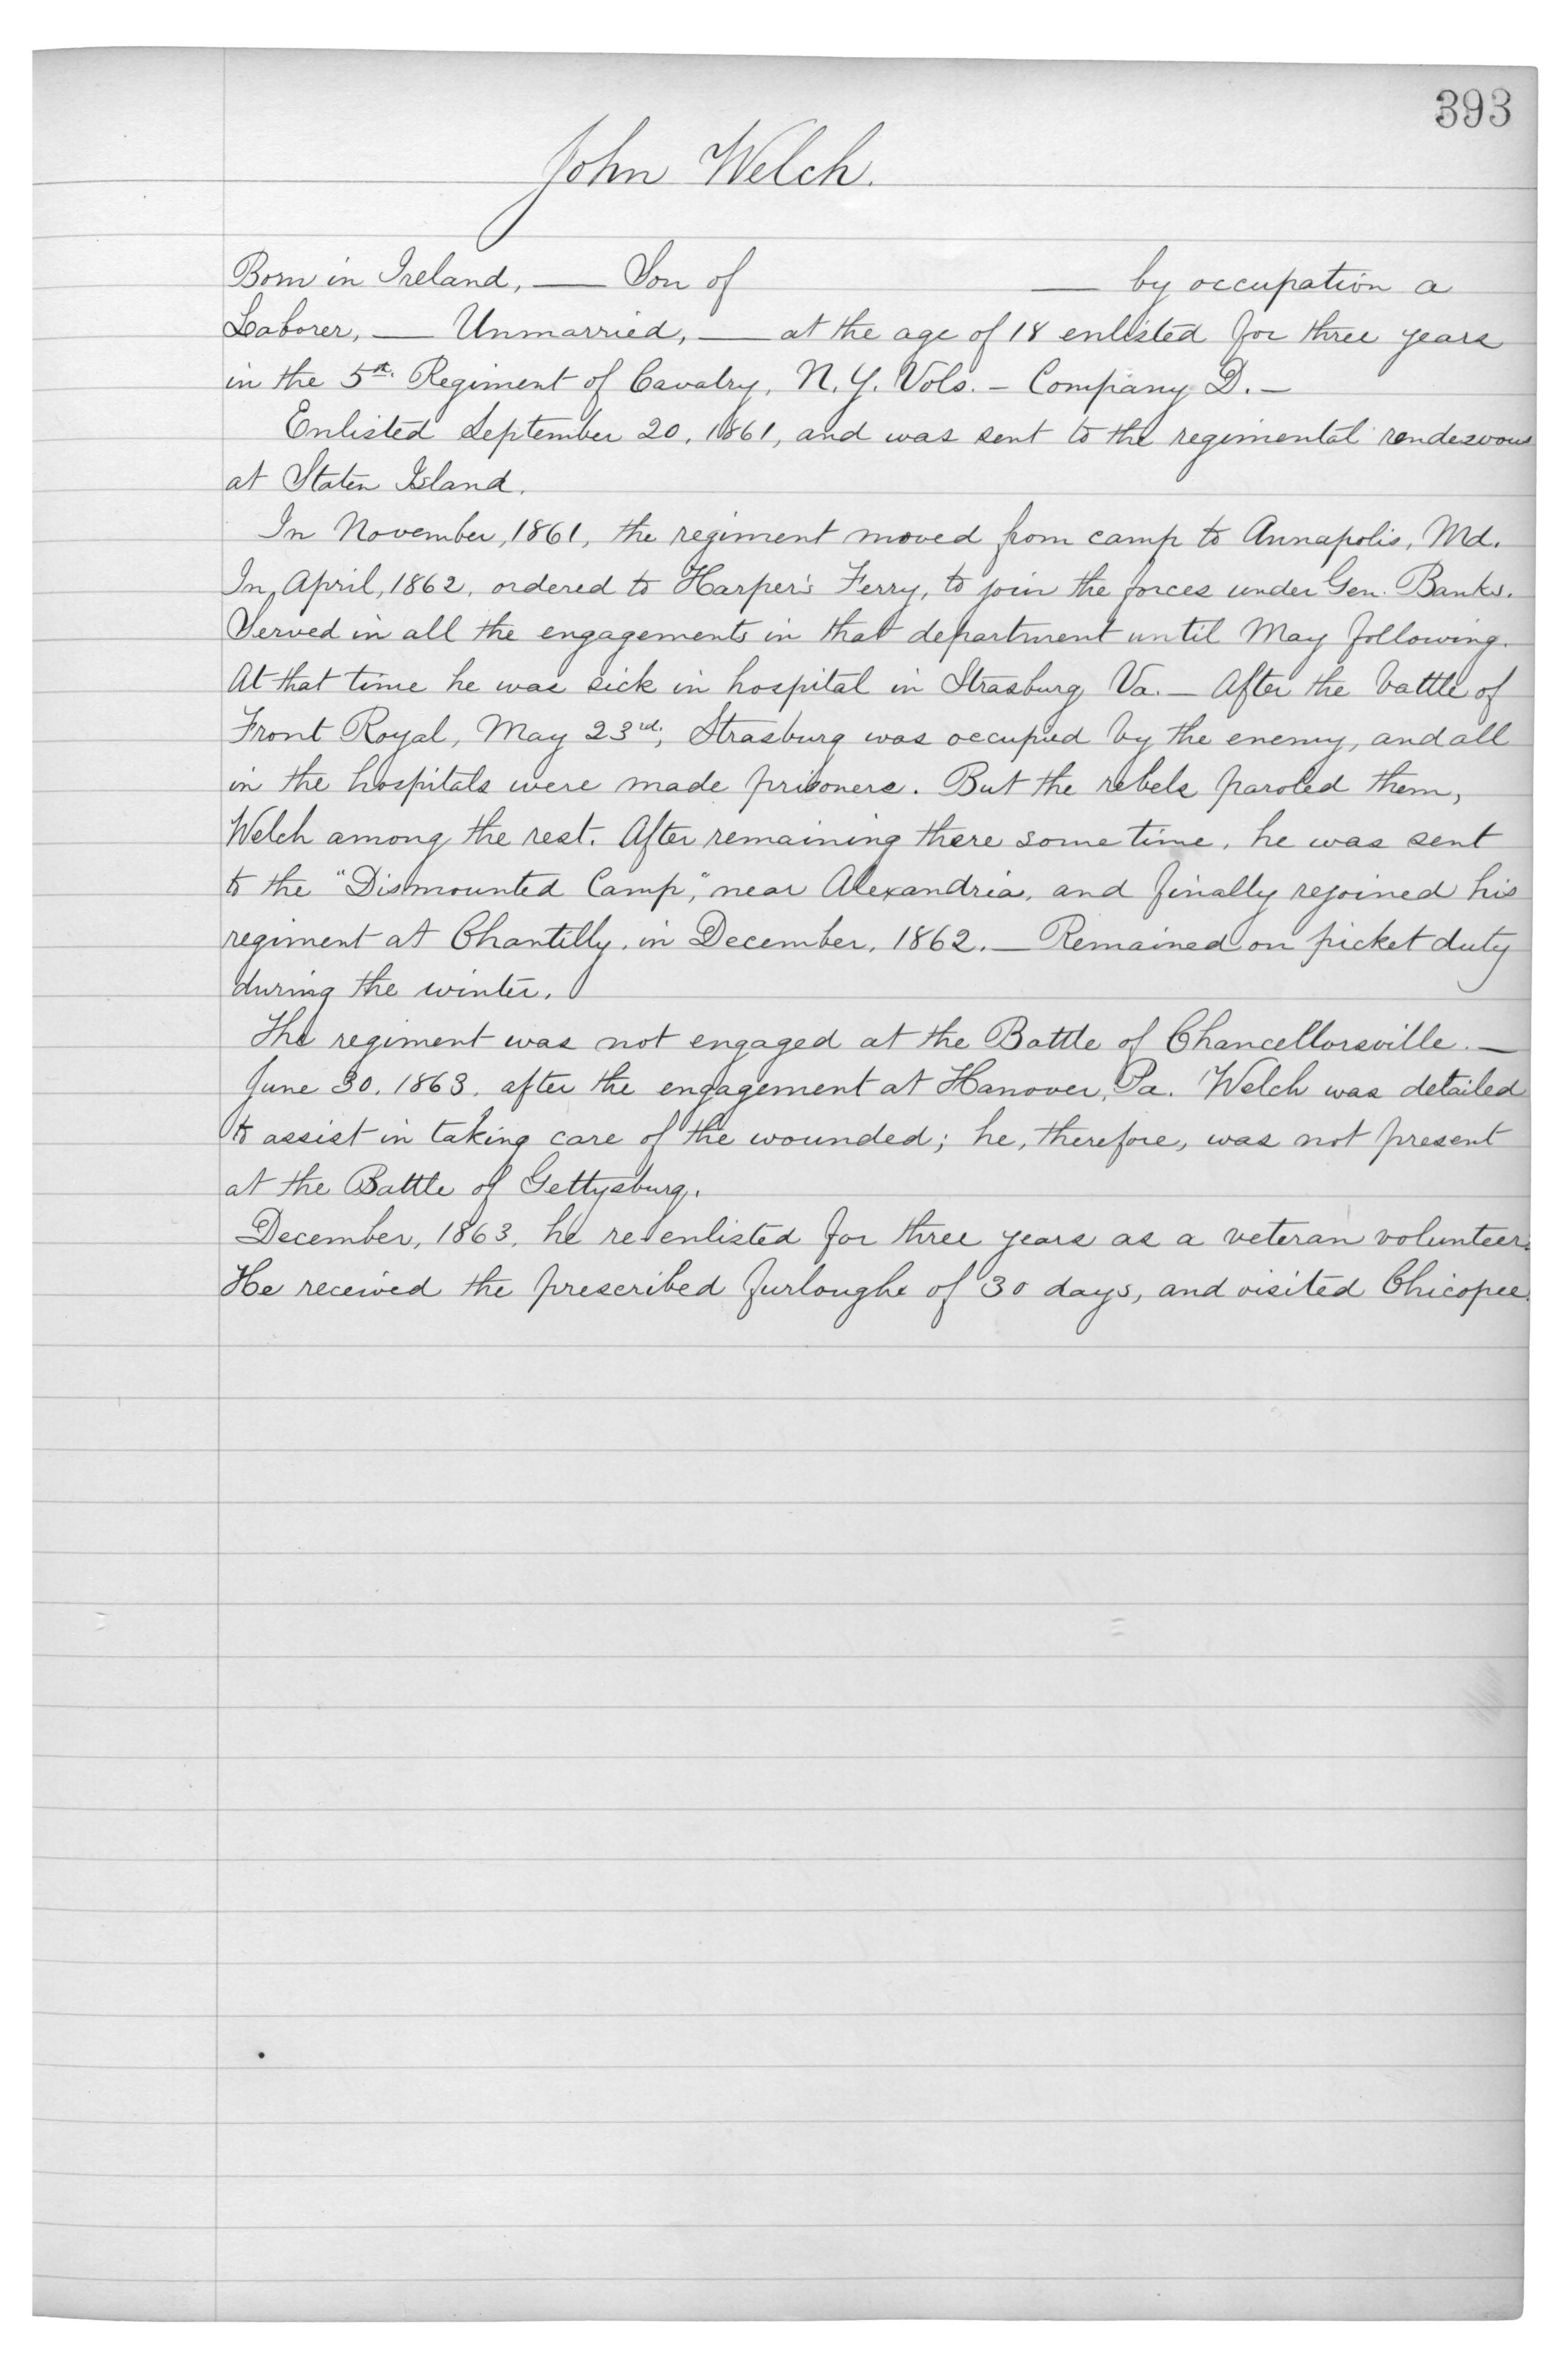 393
John Welch.
Born in Ireland, — Son of — by occupation a
Laborer, — Unmarried, — at the age of 18 enlisted for three years
in the 5th. Regiment of Cavalry, N. Y. Vols. — Company D. —
Enlisted September 20, 1861, and was sent to the regimental rendezvous
at Staten Island.
In November, 1861, the regiment moved from camp to Annapolis, Md.
In April, 1862, ordered to Harper's Ferry, to join the forces under Gen. Banks.
Served in all the engagements in that department until May following.
At that time he was sick in hospital in Strasburg Va. — After the battle of
Front Royal, May 23rd, Strasburg was occupied by the enemy, and all
in the hospitals were made prisoners. But the rebels paroled them,
Welch among the rest. After remaining there some time, he was sent
to the "Dismounted Camp," near Alexandria, and finally rejoined his
regiment at Chantilly, in December, 1862. — Remained on picket duty
during the winter.
The regiment was not engaged at the Battle of Chancellorsville. —
June 30, 1863, after the engagement at Hanover, Pa. Welch was detailed
to assist in taking care of the wounded; he, therefore, was not present
at the Battle of Gettysburg.
December, 1863, he re-enlisted for three years as a veteran volunteer.
He received the prescribed furloughs of 30 days, and visited Chicopee.